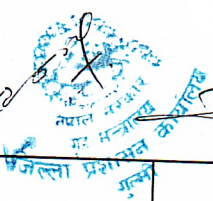 नेपाल सरकार
गृह मन्त्रालय
जिल्ला प्रशासन कार्यालय
गुल्मी